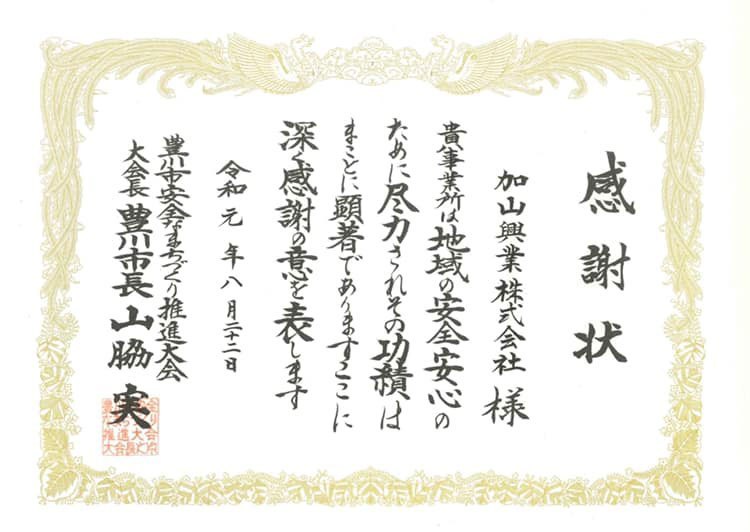 感謝状
加山興業株式会社 様
貴事業所は地域の安全安心の
ために尽力されその功績は
まことに顕著でありますここに
深く感謝の意を表します
令和元年八月二十二日
豊川市安全なまちづくり推進大会
大会長 豊川市長 山脇 実